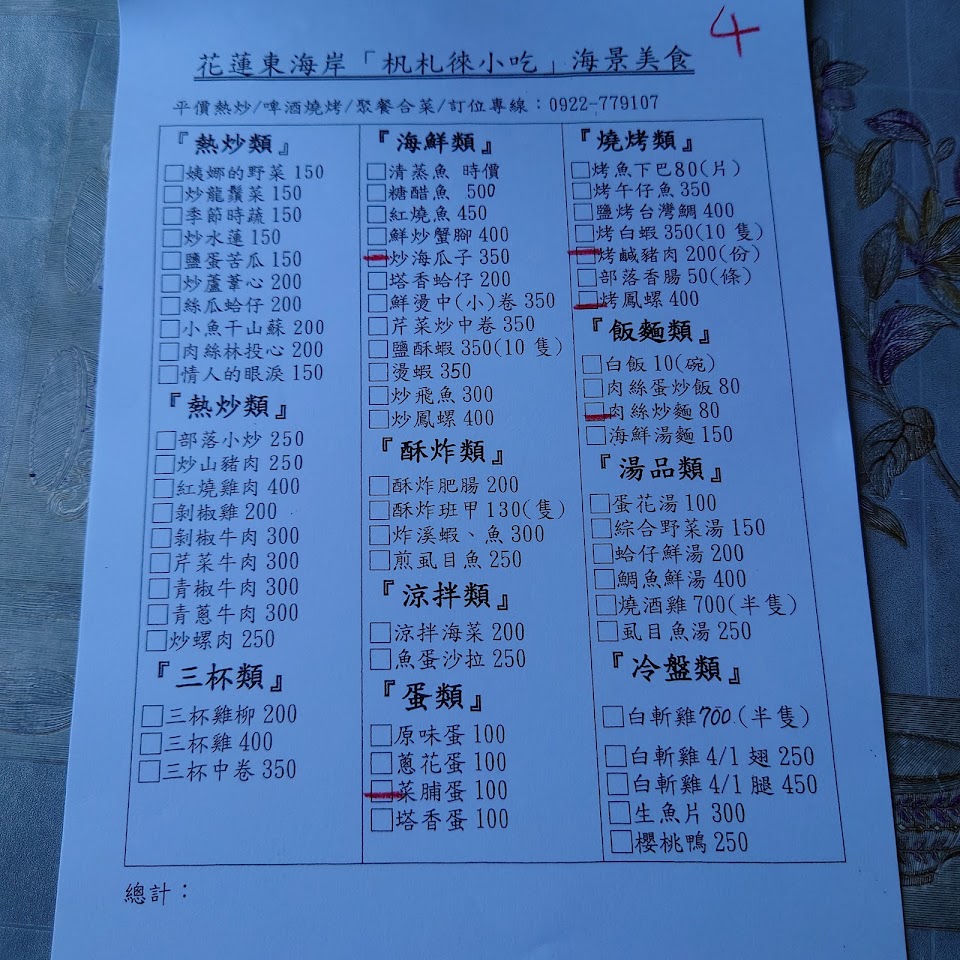 4
花蓮東海岸「朳札徠小吃」海景美食
平價熱炒/啤酒燒烤/聚餐合菜/訂位專線：0922-779107
『熱炒類』
姨娜的野菜 150
炒龍鬚菜 150
季節時蔬 150
炒水蓮 150
鹽蛋苦瓜 150
炒蘆葦心 200
絲瓜蛤仔 200
小魚干山蘇 200
肉絲林投心 200
情人的眼淚 150
『熱炒類』
部落小炒 250
炒山豬肉 250
紅燒雞肉 400
剝椒雞 200
剝椒牛肉 300
芹菜牛肉 300
青椒牛肉 300
青蔥牛肉 300
炒螺肉 250
『三杯類』
三杯雞柳 200
三杯雞 400
三杯中卷 350
『海鮮類』
清蒸魚 時價
糖醋魚 500
紅燒魚 450
鮮炒蟹腳 400
炒海瓜子 350
塔香蛤仔 200
鮮燙中(小)卷 350
芹菜炒中卷 350
鹽酥蝦 350(10 隻)
燙蝦 350
炒飛魚 300
炒鳳螺 400
『酥炸類』
酥炸肥腸 200
酥炸班甲 130(隻)
炸溪蝦、魚 300
煎虱目魚 250
『涼拌類』
涼拌海菜 200
魚蛋沙拉 250
『蛋類』
原味蛋 100
蔥花蛋 100
菜脯蛋 100
塔香蛋 100
『燒烤類』
烤魚下巴 80(片)
烤午仔魚 350
鹽烤台灣鯛 400
烤白蝦 350(10 隻)
烤鹹豬肉 200(份)
部落香腸 50(條)
烤鳳螺 400
『飯麵類』
白飯 10(碗)
肉絲蛋炒飯 80
肉絲炒麵 80
海鮮湯麵 150
『湯品類』
蛋花湯 100
綜合野菜湯 150
蛤仔鮮湯 200
鯛魚鮮湯 400
燒酒雞 700(半隻)
虱目魚湯 250
『冷盤類』
白斬雞 700.(半隻)
白斬雞 4/1 翅 250
白斬雞 4/1 腿 450
生魚片 300
櫻桃鴨 250
總計：